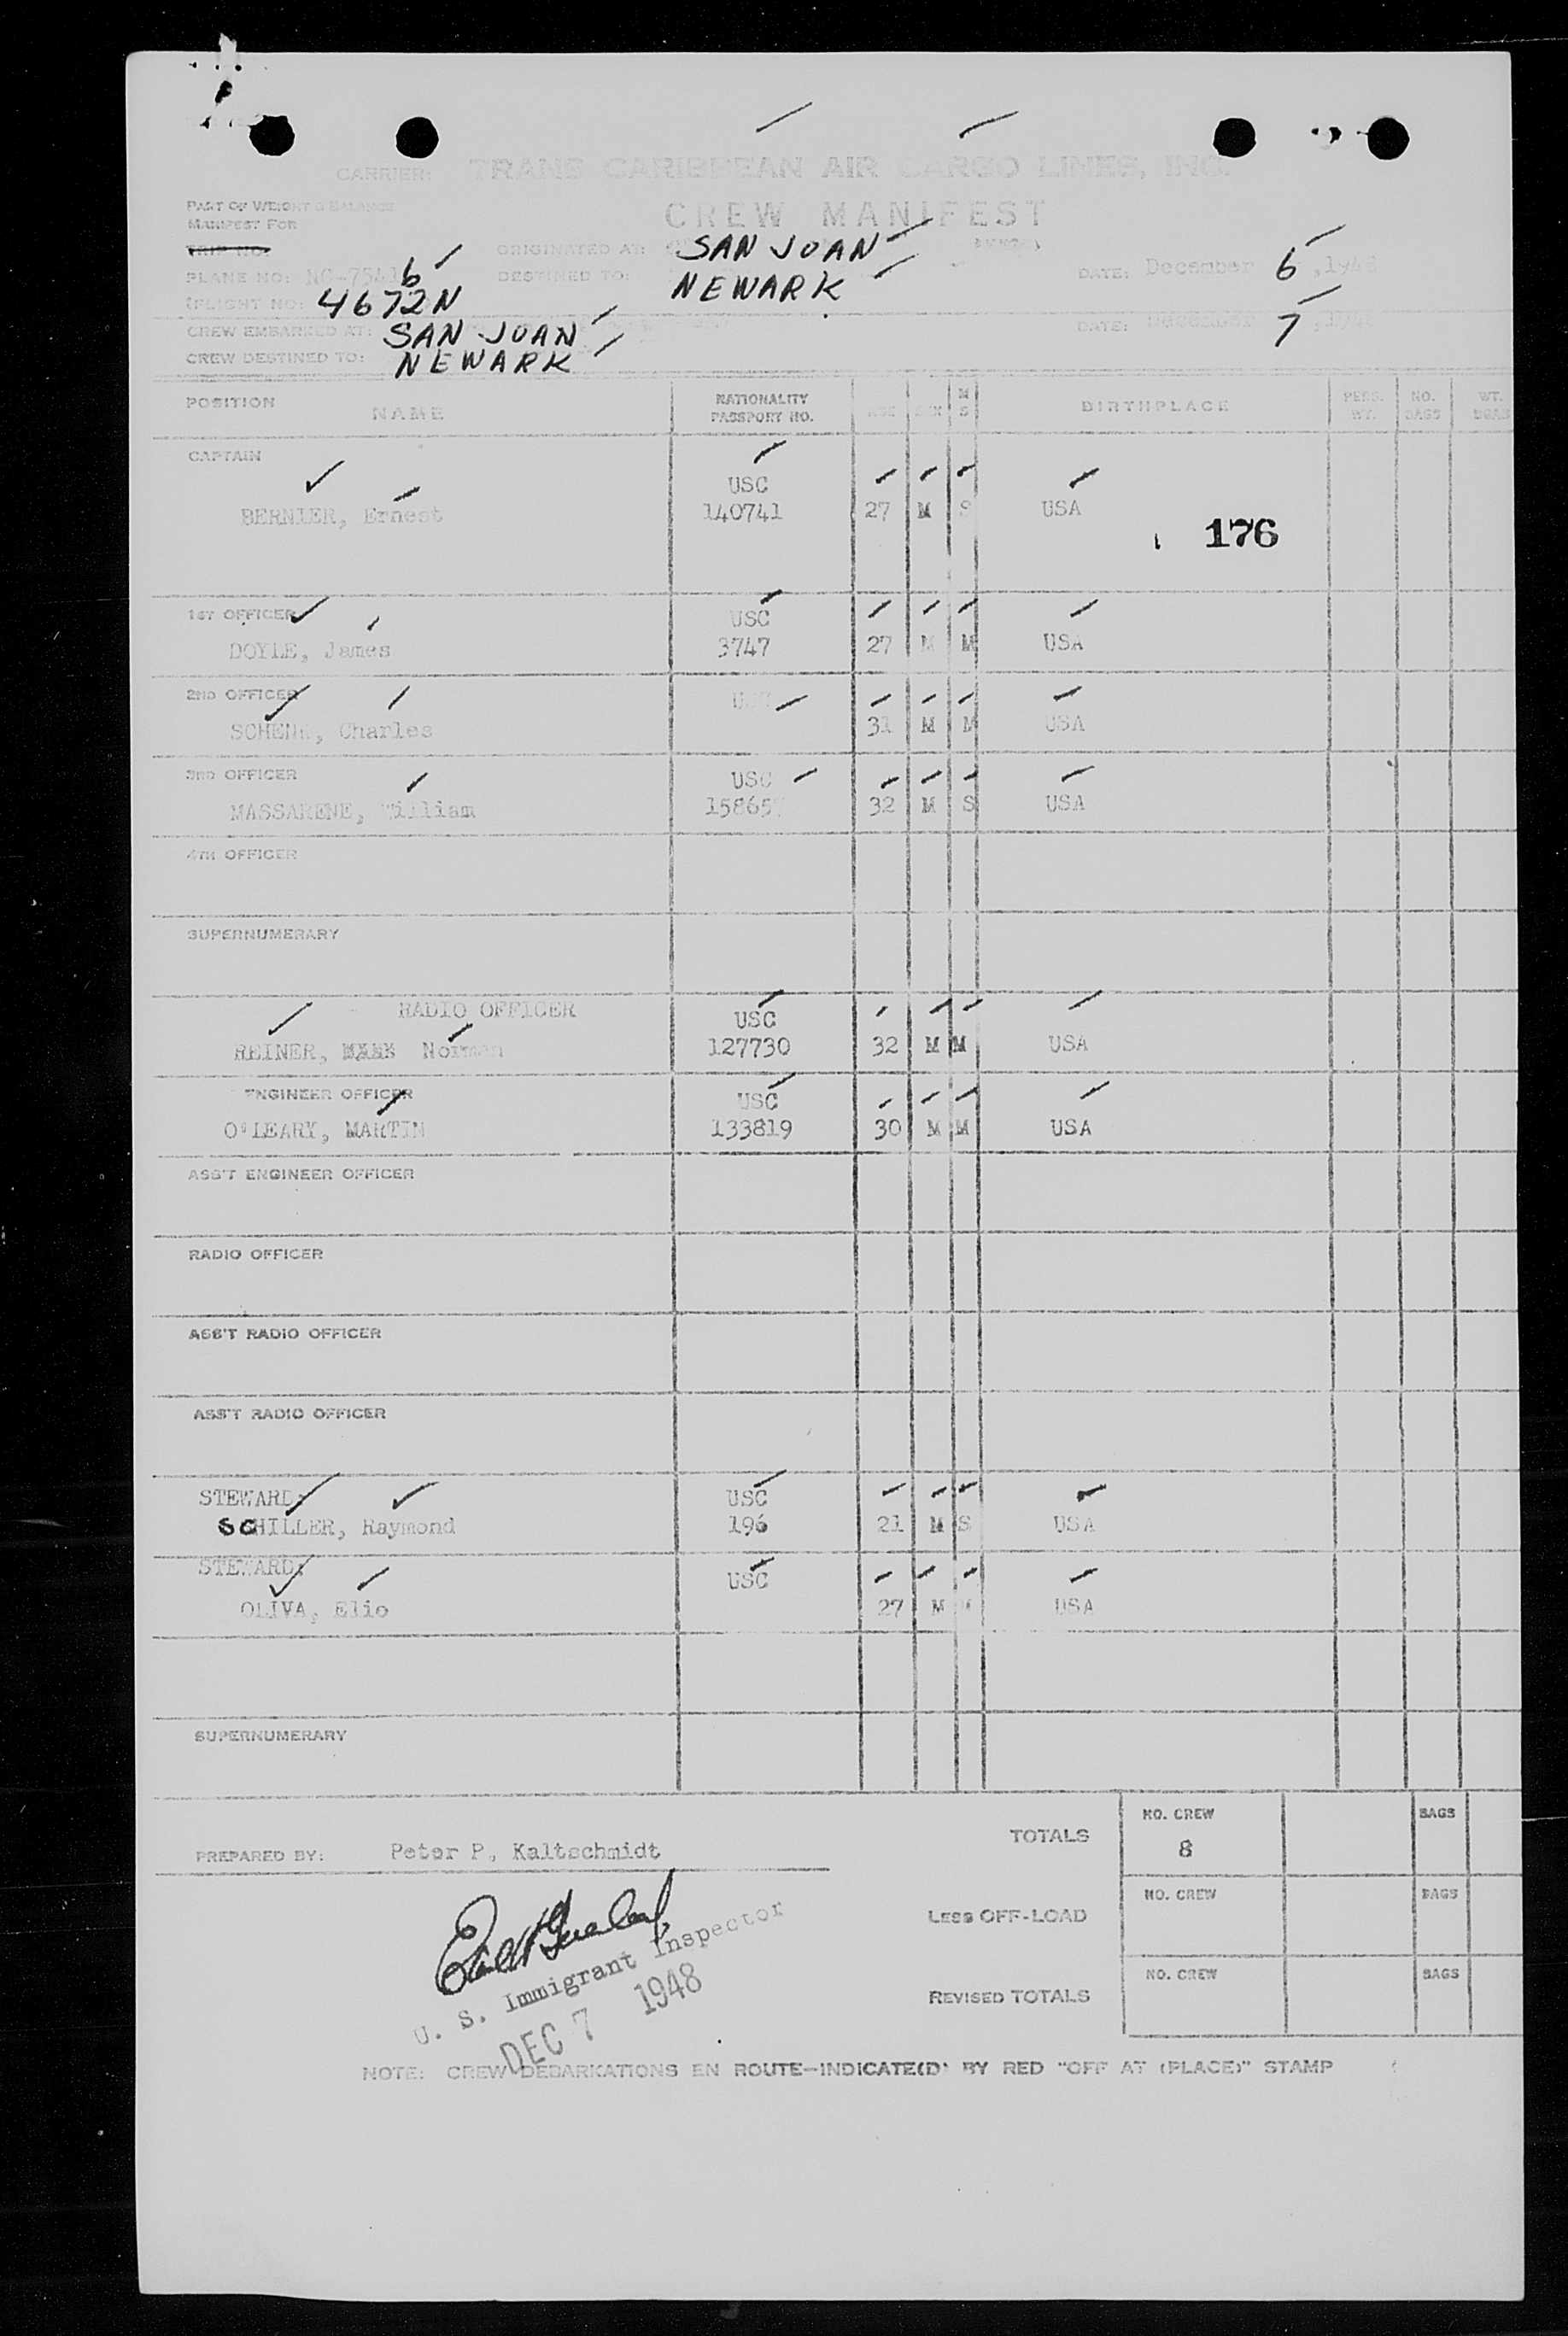 CARRIER: TRANS CARIBBEAN AIR CARGO LINES, INC.
PART OF WEIGHT & BALANCE
MANIFEST FOR
CREW MANIFEST
TRIP NO.
ORIGINATED AT: SAN JUAN
PLANE NO: NC-75416
DESTINED TO: NEWARK
DATE: December 6, 1948
(FLIGHT NO: 4672N
CREW EMBARKED AT: SAN JUAN
DATE: December 7, 1948
CREW DESTINED TO: NEWARK
POSITION NAME NATIONALITY PASSPORT NO. AGE SEX M S BIRTHPLACE PERS. WT. NO. BAGS WT. BGAS
CAPTAIN
USC
BERNIER, Ernest 140741 27 M S USA
176
1ST OFFICER USC
DOYLE, James 3747 27 M M USA
2ND OFFICER
Charles 31 M M USA
3RD OFFICER USC
MASSARENE, William 32 M S USA
4TH OFFICER
SUPERNUMERARY
RADIO OFFICER USC
REINER, Norman 127730 32 M M USA
ENGINEER OFFICER USC
O'LEARY, MARTIN 133819 30 M M USA
ASS'T ENGINEER OFFICER
RADIO OFFICER
ASS'T RADIO OFFICER
ASS'T RADIO OFFICER
STEWARD: USC
SCHILLER, Raymond 196 21 M S USA
STEWARD: USC
OLIVA, Elio 27 M M USA
SUPERNUMERARY
NO. CREW BAGS
TOTALS 8
PREPARED BY: Peter P. Kaltschmidt
NO. CREW BAGS
LESS OFF-LOAD
U. S. Immigrant Inspector
NO. CREW BAGS
REVISED TOTALS
DEC 7 1948
NOTE: CREW DEBARKATIONS EN ROUTE-INDICATE(D) BY RED "OFF AT (PLACE)" STAMP